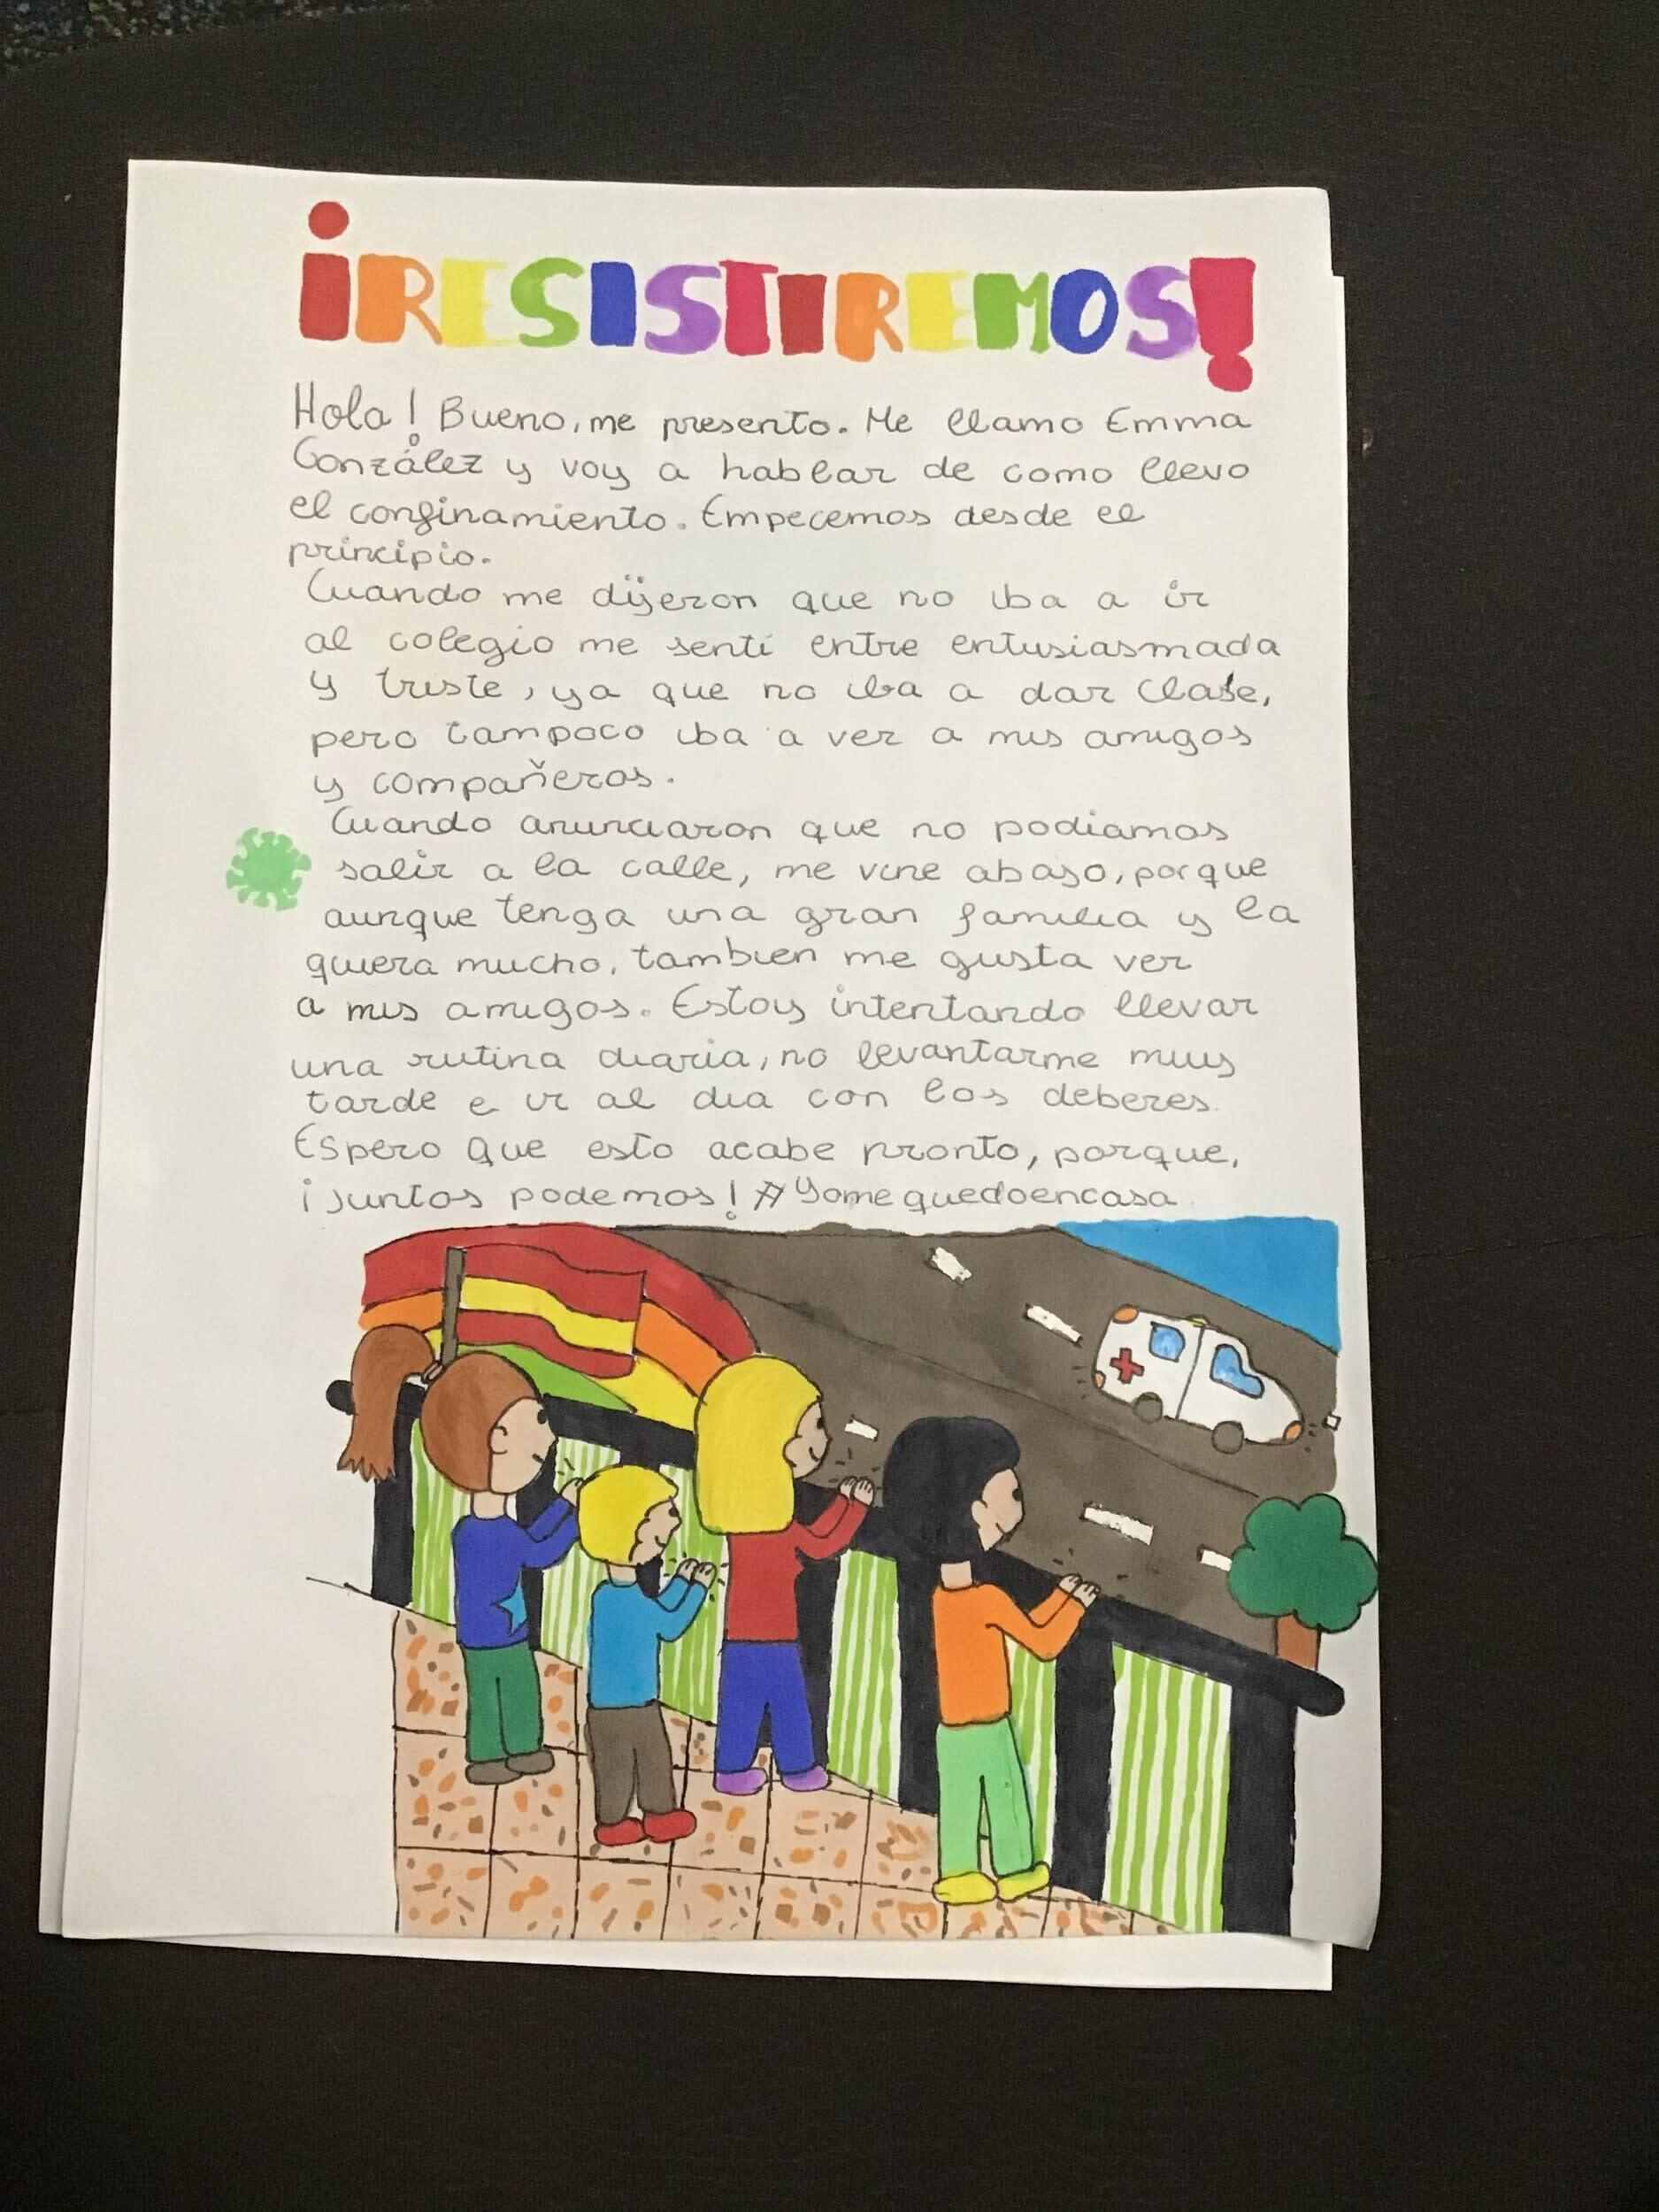 ¡RESISTIREMOS!
Hola! Bueno, me presento. Me llamo Emma
González y voy a hablar de como llevo
el confinamiento. Empecemos desde el
principio.
Cuando me dijeron que no iba a ir
al colegio me sentí entre entusiasmada
y triste, ya que no iba a dar clase,
pero tampoco iba a ver a mis amigos
y compañeros.
Cuando anunciaron que no podiamos
salir a la calle, me vine abajo, porque
aunque tenga una gran familia y la
quiera mucho, tambien me gusta ver
a mis amigos. Estoy intentando llevar
una rutina diaria, no levantarme muy
tarde e ir al dia con los deberes.
Espero que esto acabe pronto, porque,
¡juntos podemos! #Yomequedoencasa